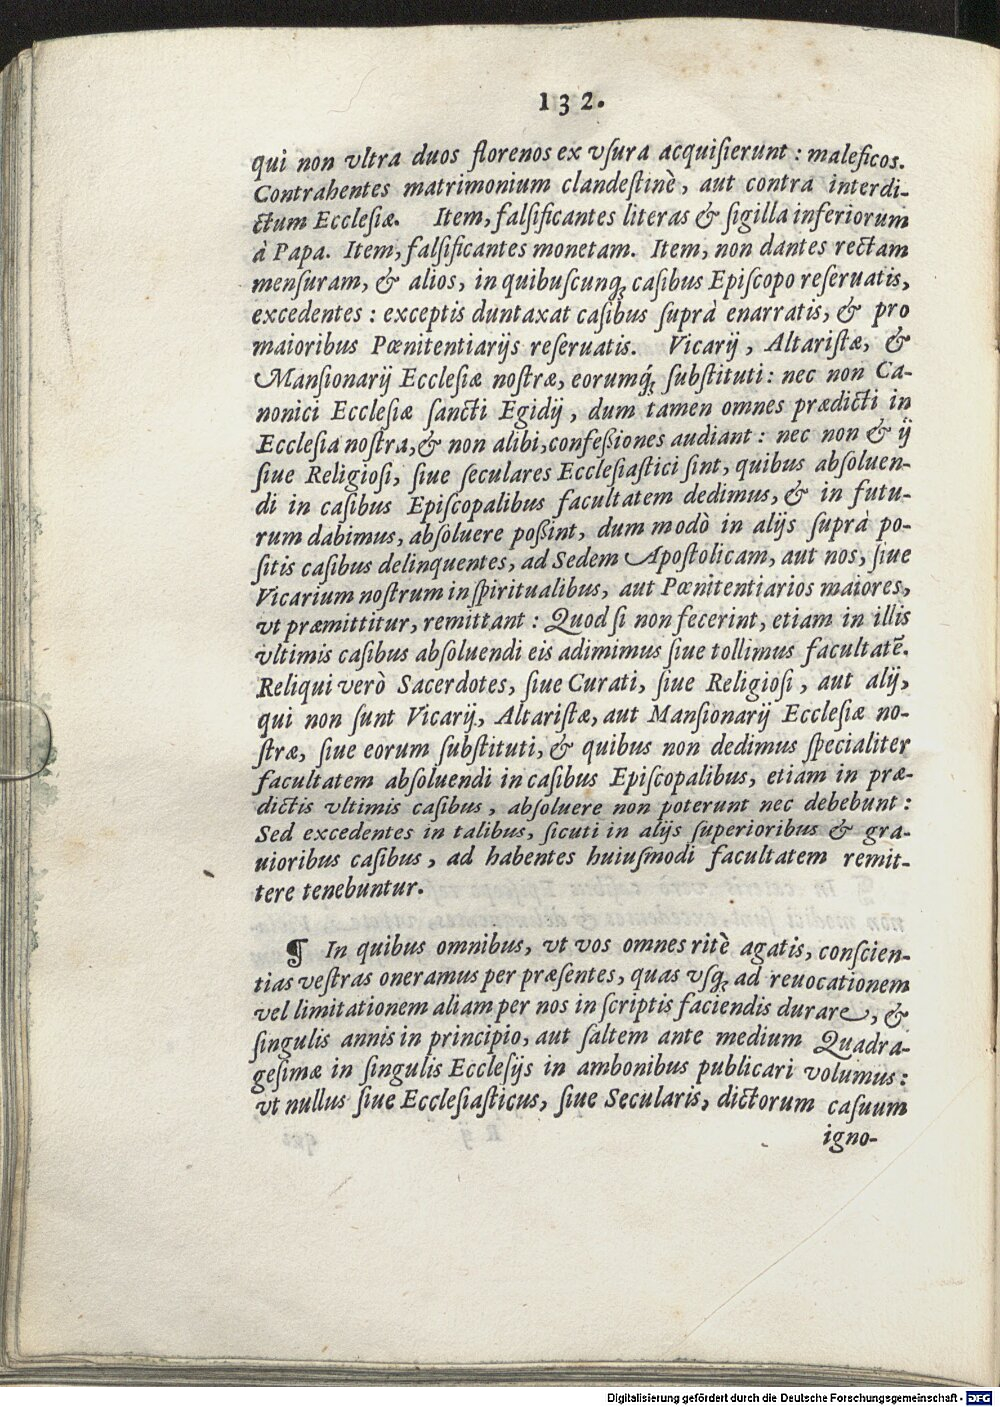 132.
qui non vltra duos florenos ex vſura acquiſierunt : maleficos.
Contrahentes matrimonium clandeſtinè, aut contra interdi-
ctum Eccleſiæ. Item, falſificantes literas & ſigilla inferiorum
à Papa. Item, falſificantes monetam. Item, non dantes rectam
menſuram, & alios, in quibuſcunq; caſibus Epiſcopo reſeruatis,
excedentes : exceptis duntaxat caſibus ſuprà enarratis, & pro
maioribus Pœnitentiarijs reſeruatis. Vicarij, Altariſtæ, &
Manſionarij Eccleſiæ noſtræ, eorumq́; ſubſtituti : nec non Ca-
nonici Eccleſiæ ſancti Egidij, dum tamen omnes prædicti in
Eccleſia noſtra, & non alibi, confeßiones audiant : nec non & ij
ſiue Religioſi, ſiue ſeculares Eccleſiaſtici ſint, quibus abſoluen-
di in caſibus Epiſcopalibus facultatem dedimus, & in futu-
rum dabimus, abſoluere poßint, dum modò in alijs ſuprà po-
ſitis caſibus delinquentes, ad Sedem Apoſtolicam, aut nos, ſiue
Vicarium noſtrum in ſpiritualibus, aut Pœnitentiarios maiores,
vt præmittitur, remittant : Quod ſi non fecerint, etiam in illis
vltimis caſibus abſoluendi eis adimimus ſiue tollimus facultatē.
Reliqui verò Sacerdotes, ſiue Curati, ſiue Religioſi, aut alij,
qui non ſunt Vicarij, Altariſtæ, aut Manſionarij Eccleſiæ no-
ſtræ, ſiue eorum ſubſtituti, & quibus non dedimus ſpecialiter
facultatem abſoluendi in caſibus Epiſcopalibus, etiam in præ-
dictis vltimis caſibus, abſoluere non poterunt nec debebunt :
Sed excedentes in talibus, ſicuti in alijs ſuperioribus & gra-
uioribus caſibus, ad habentes huiuſmodi facultatem remit-
tere tenebuntur.
¶ In quibus omnibus, vt vos omnes ritè agatis, conſcien-
tias veſtras oneramus per præſentes, quas vſq; ad reuocationem
vel limitationem aliam per nos in ſcriptis faciendis durare, &
ſingulis annis in principio, aut ſaltem ante medium Quadra-
geſimæ in ſingulis Eccleſijs in ambonibus publicari volumus :
vt nullus ſiue Eccleſiaſticus, ſiue Secularis, dictorum caſuum
igno-
Digitalisierung gefördert durch die Deutsche Forschungsgemeinschaft - DFG